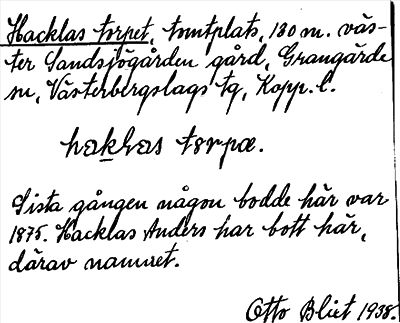 Hacklas torpet, tomtplats, 130 m. väs-
ter Sandsjögården gård, Grangärde
sn, Västerbergslags tg, Kopp. l.
haklas torpæ.
Sista gången någon bodde här var
1875. Hacklas Anders har bott här,
därav namnet.
Otto Blixt 1938.